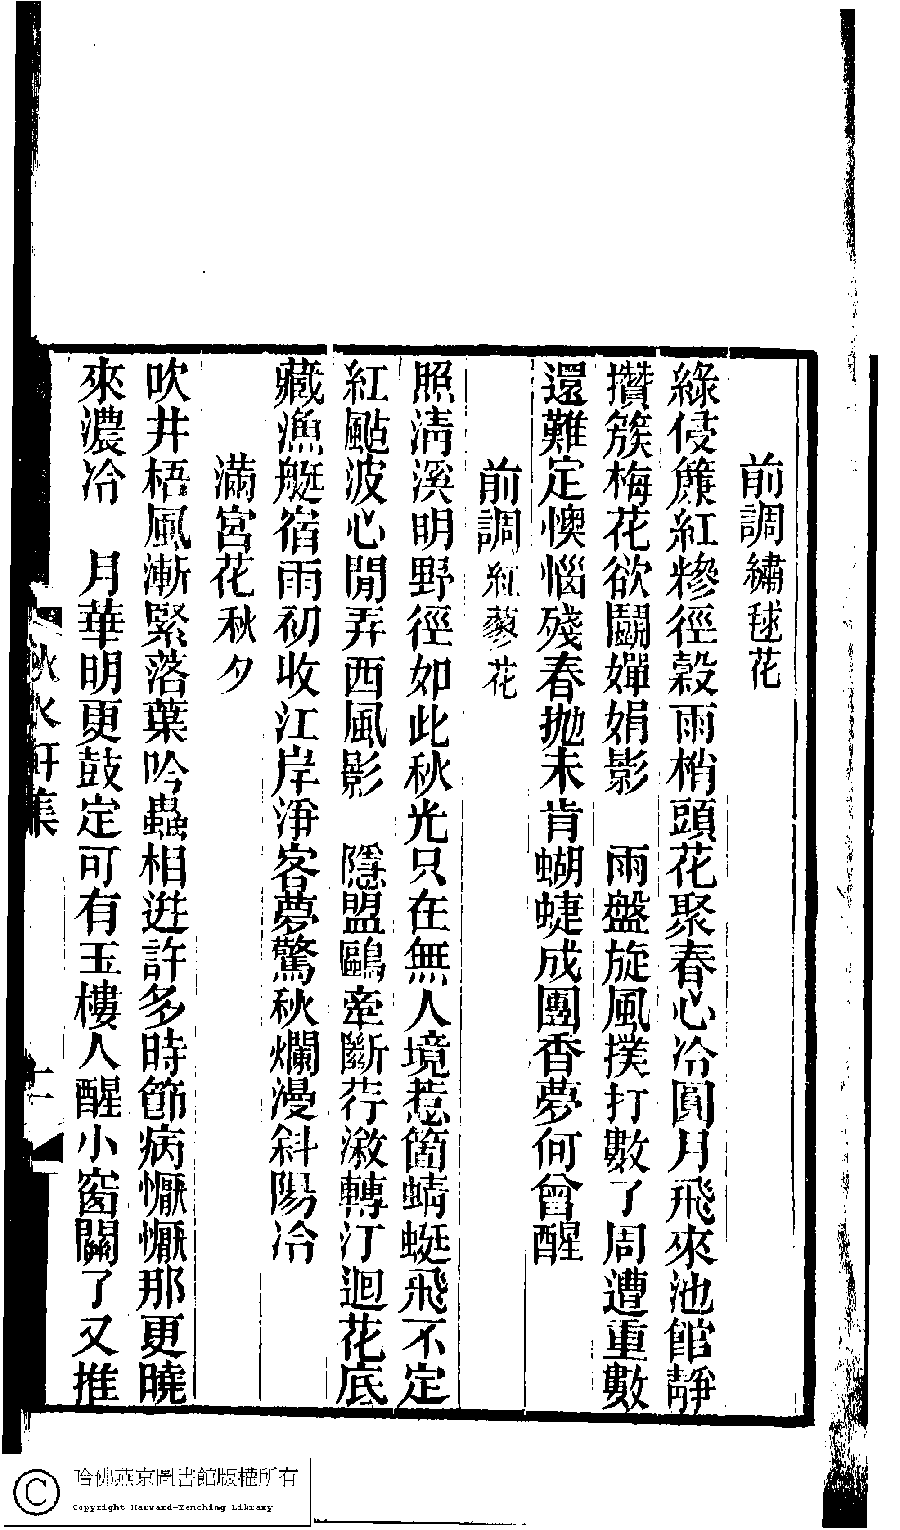 前調繡毬花
綠侵簾紅糝徑穀雨梢頭花聚春心冷圓月飛來池館靜
攢簇梅花欲鬬嬋娟影　雨盤旋風撲打數了周遭重數
還難定懊惱殘春拋未肯蝴蜨成團香夢何曾醒
前調紅蓼花
照清溪明野徑如此秋光只在無人境惹箇蜻蜓飛不定
紅颭波心閒弄西風影　隱盟鷗牽斷荇潊轉汀迴花底
藏漁艇宿雨初收江岸淨客夢驚秋爛漫斜陽冷
滿宮花秋夕
吹井梧風漸緊落葉吟蟲相迸許多時節病懨懨那更曉
來濃冷　月華明更鼓定可有玉樓人醒小窗關了又推
秋水軒集
十一
哈佛燕京圖書館版權所有
Copyright Harvard-Yenching Library